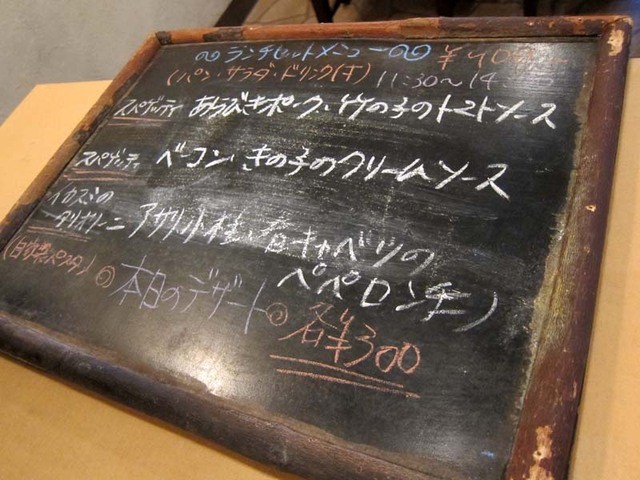 ランチセットメニュー
(パン・サラダ・ドリンク付) 11:30~14
スパゲッティ あらびきポーク・竹の子のトマトソース
スパゲッティ ベーコン・きの子のクリームソース
イカスミの
タリオリーニ アサリ小柱・春キャベツの
ペペロンチーノ
(自家製パスタ)
本日のデザート 各¥300